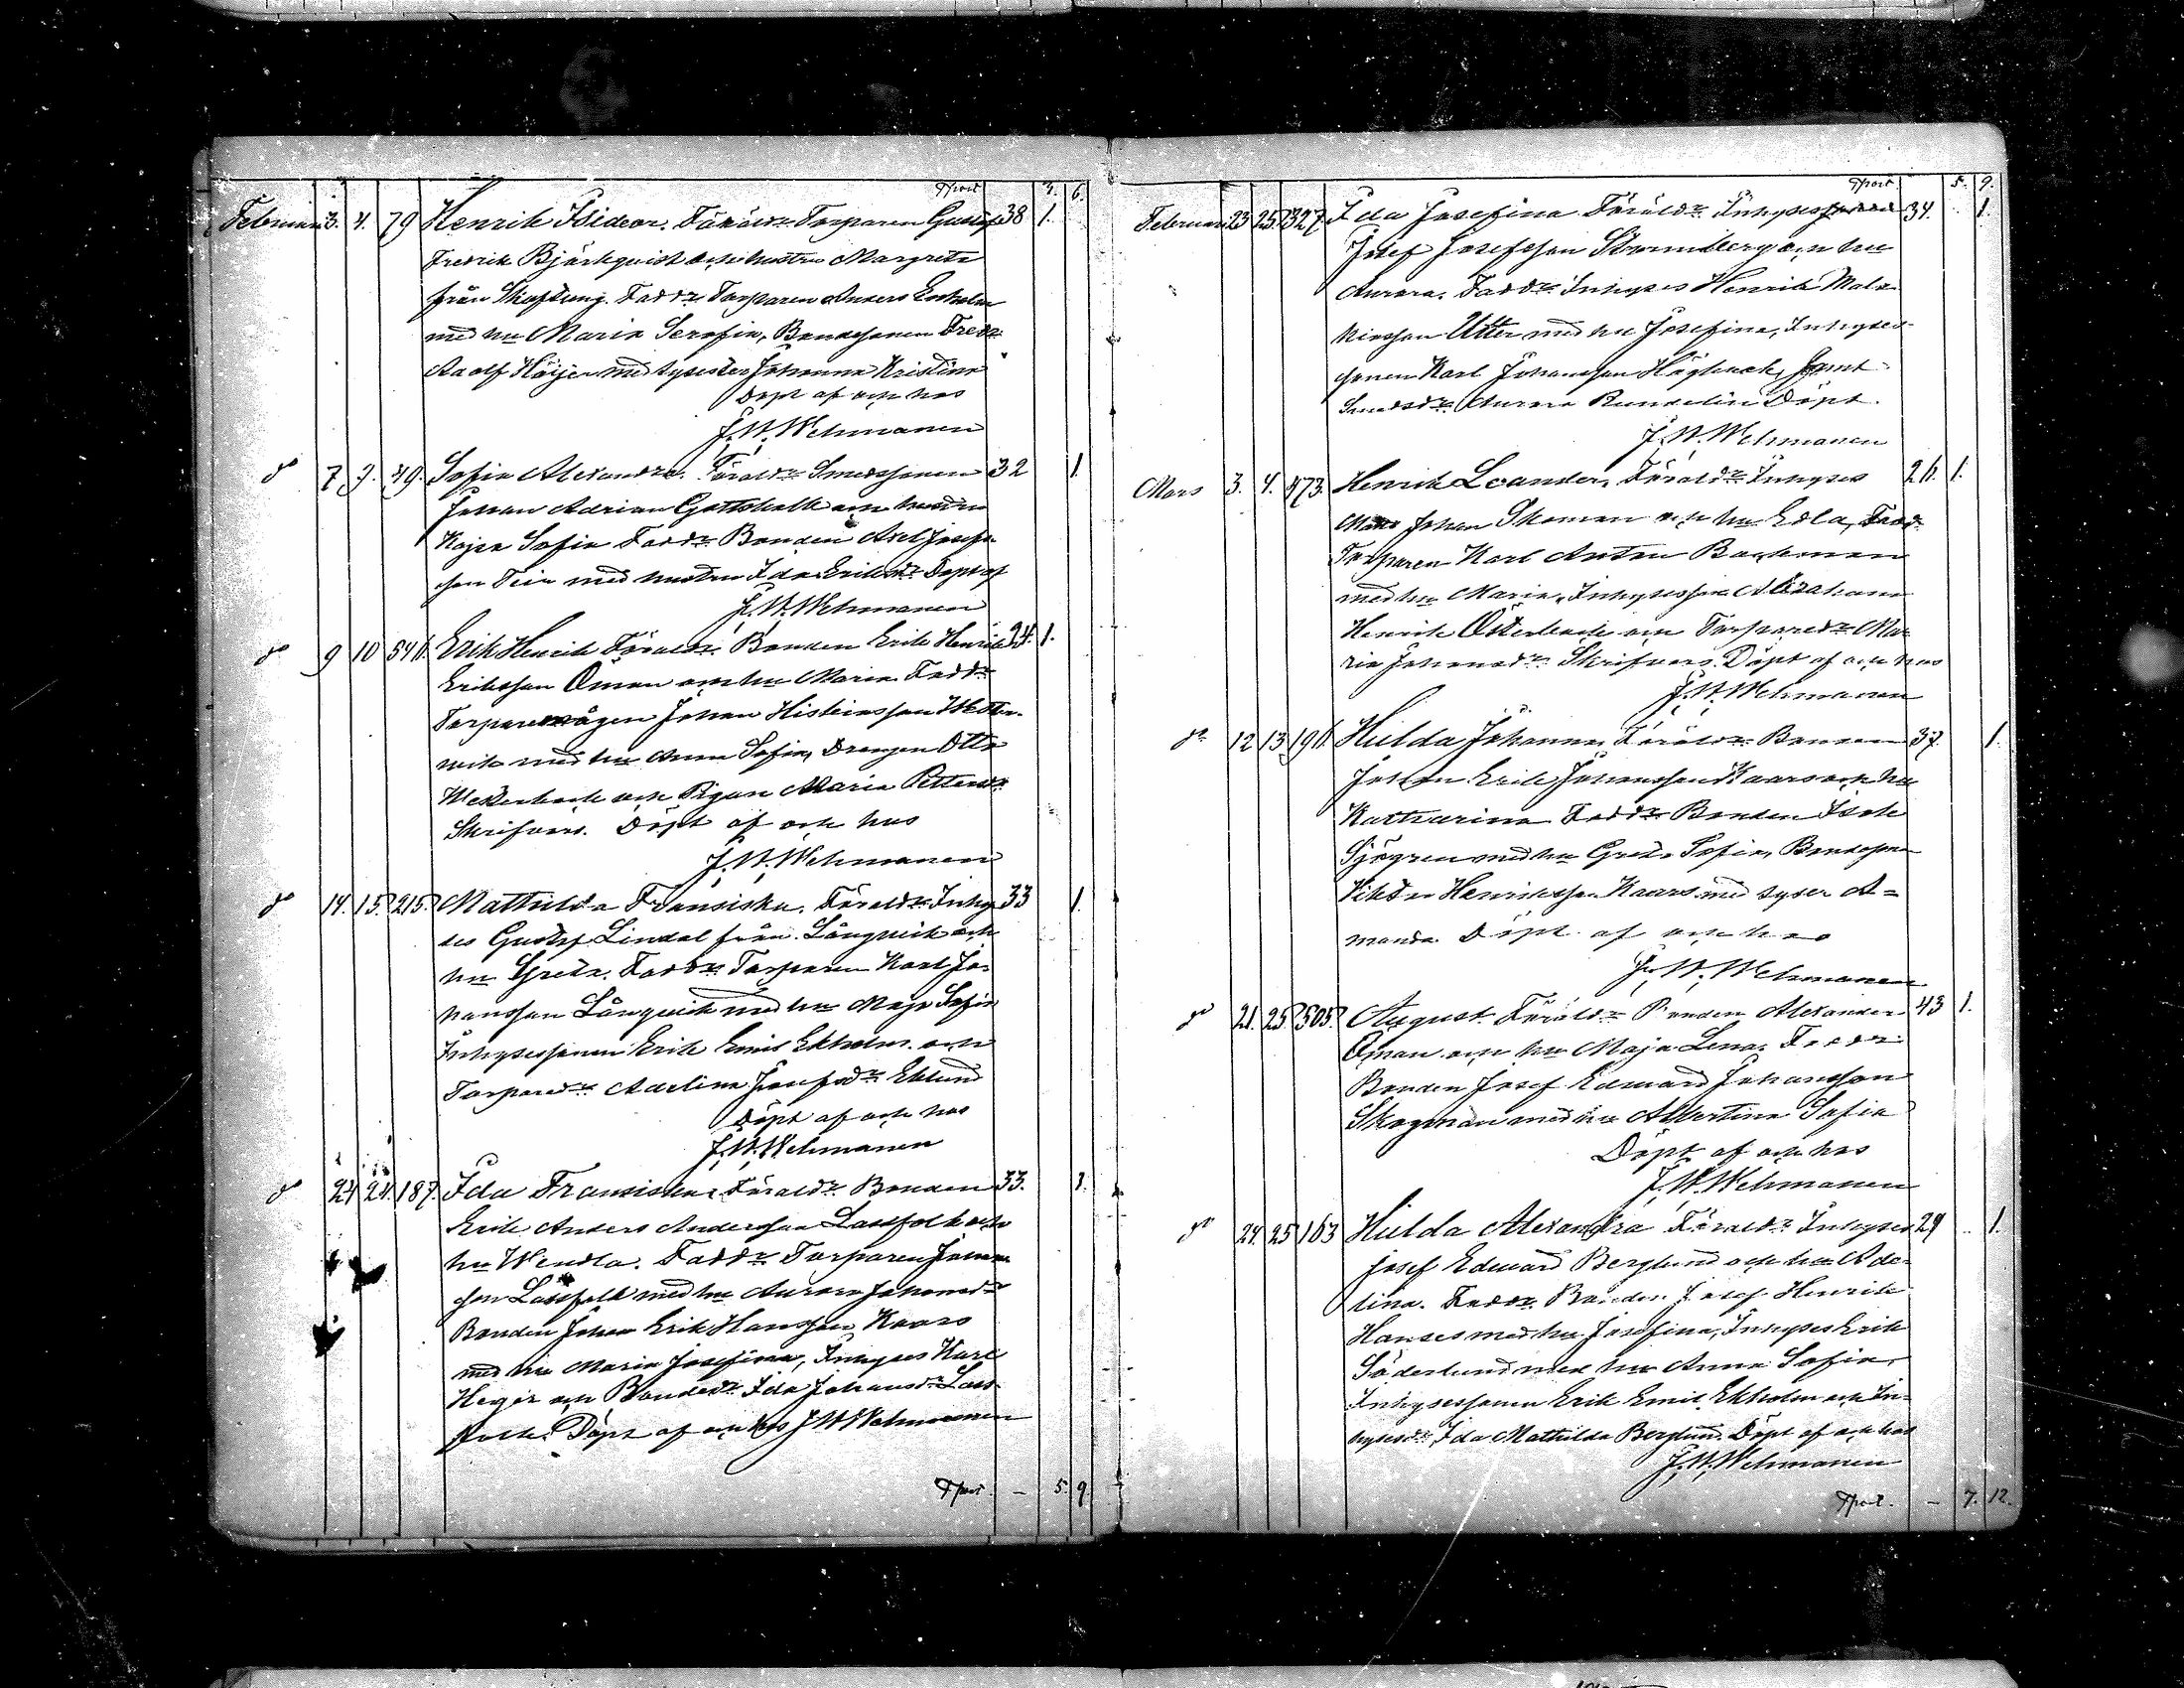 Tport 4. 6.
Februari 3. 4. 79 Henrik Isidor. Föräldr Torparen Gustaf 38 1.
Fredrik Björkqvist och hustru Margreta
från Skaftung. Faddr Torparen Anders Enholm
med hu Maria Serafia, Bondesonen Fredr
Adolf Höijer med syster Johanna Kristina
Döpt af och hos
J. W. Wehmanen
do 7 9. 49. Sofia Alexandra. Föräldr Smedssonen 32 1.
Johan Adrian Gottskalk och hustru
Kajsa Sofia Faddr Bonden Axel Josefs-
son Teir med hustru Ida Eriksdr Döpt af
J. W. Wehmanen
do 9 10 546. Erik Henrik Föräldr Bonden Erik Henrik 24. 1.
Eriksson Öman och hu Maria Faddr
Torparemågen Johan Wester-
vik med hu Anna Sofia, Drengen Otto
Westerback och Pigan Maria Pettersdr
Skrifvars. Döpt af och hos
J. W. Wehmanen
do 14. 15. 215. Mathilda Fransiska. Föräldr Inhy- 33 1.
ses Gustaf Lindal från Långvik och
hu Greta. Faddr Torparen Karl Jo-
hansson Långvik med hu Maja Sofia
Inhysessonen Erik Emil Ekholm och
Torparedr Adelina Josefsdr Eklund
Döpt af och hos
J. W. Wehmanen
do 24 24. 187. Ida Fransiska. Föräldr Bonden 33. 1.
Erik Anders Andersson Lassfolk och
hu Wendla. Faddr Torparen Johan
son Lassfolk med hu Aurora Johansdr
Bonden Johan Erik Hansson Kaars
med hu Maria Josefina, Inhyses Karl
Heger och Bondedr Ida Johansdr Lass-
folk. Döpt af och hos J W Wehmanen
Tport. — 5. 9.
Tport 5. 9.
Februari 23 25. 327. Ida Josefina Föräldr Inhyses 34. 1.
Josef Josefsson Strömberg och hu
Aurora. Faddr Inhyses Henrik Mala-
kiasson Utter med hu Josefina, Inhyses-
sonen Karl Johansson Högback, samt
Smedsdr Aurora Rundelin Döpt.
J. W. Wehmanen
Mars 3. 4. 473. Henrik Leander, Föräldr Inhyses 26. 1.
Johan Skoman och hu Edla, Faddr
Torparen Karl Anton Backman
med hu Maria, Inhysesson Abraham
Henrik Österback och Torparedr Ma-
ria Johansdr Skrifvars. Döpt af och hos
J. W. Wehmanen
do 12 13 196. Hulda Johanna, Föräldr Bonden 37. 1.
Johan Erik Johansson Kaars och hu
Katharina Faddr Bonden Isak
Sjögren med hu Greta Sofia, Bondeson
Viktor Henriksson Kaars med syster A-
manda. Döpt af och hos
J. W. Wehmanen
do 21. 25. 505. August. Föräldr Bonden Alexander 43 1.
Öman och hu Maja Lena. Faddr
Bonden Josef Edward Johansson
Skogman med hu Albertina Sofia
Döpt af och hos
J. W. Wehmanen
do 24. 25 163 Hulda Alexandra Föräldr Inhyses 29 1.
Josef Edward Berglund och hu Ade-
lina. Faddr Bonden Josef Henrik
Hanses med hu Josefina, Inhyses Erik
Söderlund med hu Anna Sofia,
Inhysessonen Erik Emil Ekholm och In-
hysesdr Ida Mathilda Berglund. Döpt af och hos
J. W. Wehmanen
Tport. — 7. 12.